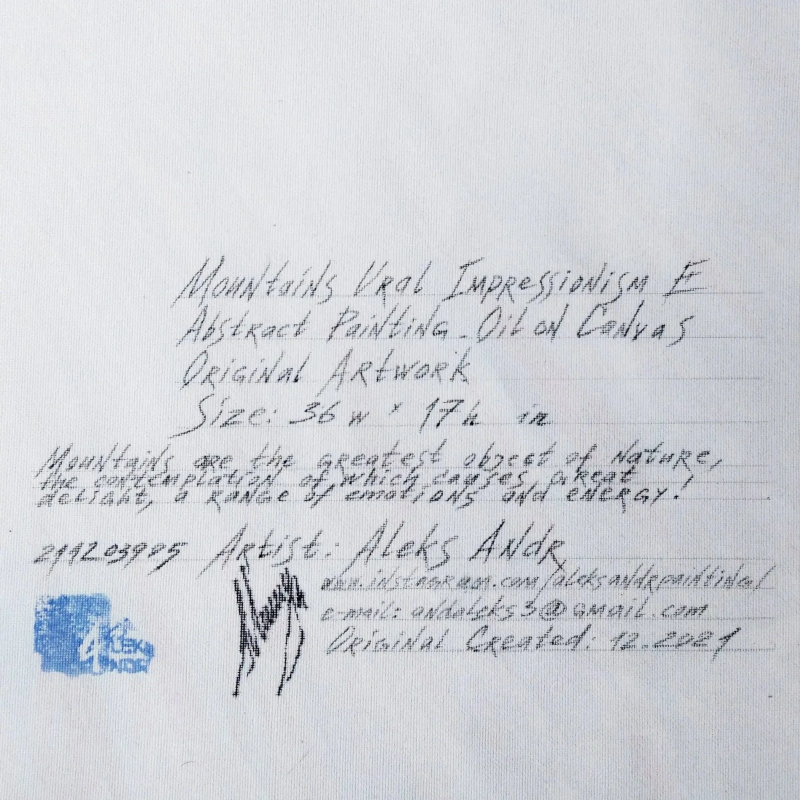 Mountains Ural Impressionism E
Abstract Painting. Oil on Canvas
Original Artwork
Size: 36 w x 17 h in
Mountains are the greatest object of nature,
the contemplation of which causes great
delight, a range of emotions and energy!
Artist: Aleks Andr
www.instagram.com/aleksandrpainting/
e-mail: andaleks3@gmail.com
Original Created: 12.2021
ALEKS
ANDR